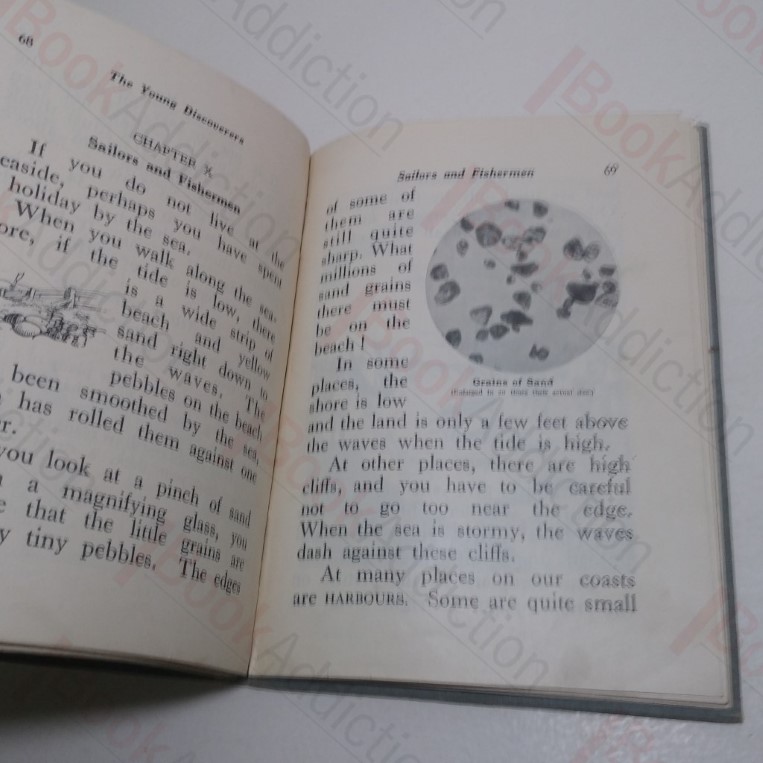 68
The Young Discoverers
CHAPTER X
Sailors and Fishermen
If you do not live at the
easide, perhaps you have spent
holiday by the sea.
When you walk along the sea-
ore, if the tide is low, there
is a wide strip of
beach and yellow
sand right down to
the waves. The
pebbles on the beach
been smoothed by the sea,
has rolled them against one
er.
you look at a pinch of sand
a magnifying glass, you
e that the little grains are
y tiny pebbles. The edges
Sailors and Fishermen
69
of some of
them are
still quite
sharp. What
millions of
sand grains
there must
be on the
beach!
Grains of Sand
In some
places, the
shore is low
and the land is only a few feet above
the waves when the tide is high.
At other places, there are high
cliffs, and you have to be careful
not to go too near the edge.
When the sea is stormy, the waves
dash against these cliffs.
At many places on our coasts
are HARBOURS. Some are quite small
BookAddiction